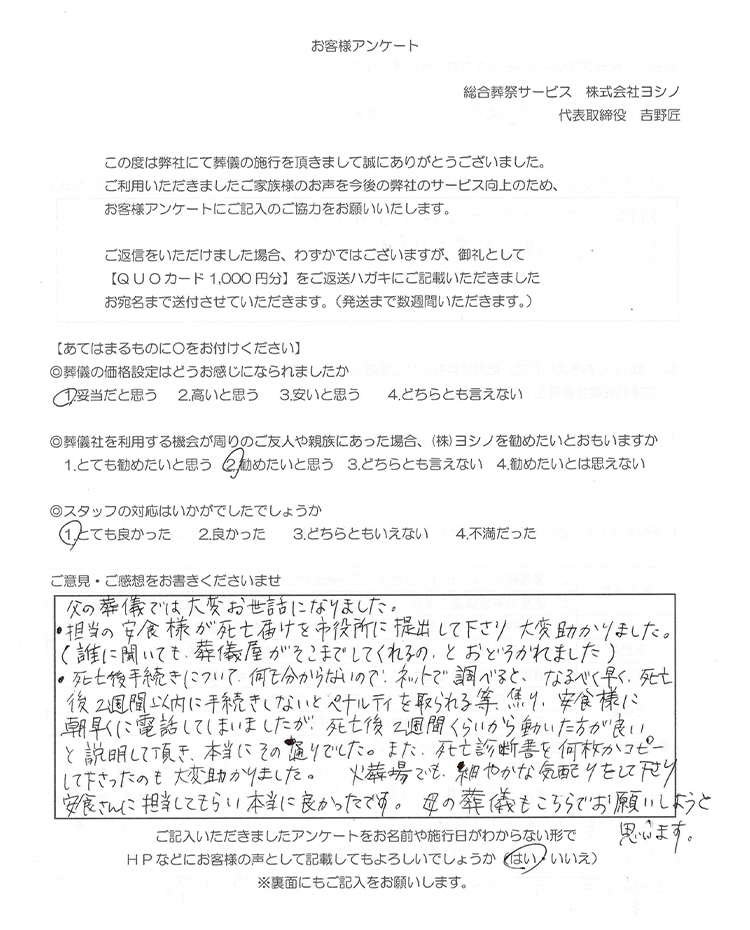 お客様アンケート
総合葬祭サービス　株式会社ヨシノ
代表取締役　吉野匠
この度は弊社にて葬儀の施行を頂きまして誠にありがとうございました。
ご利用いただきましたご家族様のお声を今後の弊社のサービス向上のため、
お客様アンケートにご記入のご協力をお願いいたします。
ご返信をいただけました場合、わずかではございますが、御礼として
【QUOカード1,000円分】をご返送ハガキにご記載いただきました
お宛名まで送付させていただきます。（発送まで数週間いただきます。）
【あてはまるものに〇をお付けください】
◎葬儀の価格設定はどうお感じになられましたか
1.妥当だと思う　2.高いと思う　3.安いと思う　4.どちらとも言えない
◎葬儀社を利用する機会が周りのご友人や親族にあった場合、(株)ヨシノを勧めたいとおもいますか
1.とても勧めたいと思う　2.勧めたいと思う　3.どちらとも言えない　4.勧めたいとは思えない
◎スタッフの対応はいかがでしたでしょうか
1.とても良かった　2.良かった　3.どちらともいえない　4.不満だった
ご意見・ご感想をお書きくださいませ
父の葬儀では大変お世話になりました。
・担当の安食様が死亡届けを市役所に提出して下さり 大変助かりました。
(誰に聞いても、葬儀屋がそこまでしてくれるの、とおどろかれました)
・死亡後手続きについて、何も分からないので、ネットで調べると、なるべく早く、死亡
後2週間以内に手続きしないとペナルティを取られる等、焦り、安食様に
朝早くに電話してしまいましたが、死亡後2週間くらいから動いた方が良い
と説明して頂き、本当にその通りでした。また、死亡診断書を何枚かコピー
して下さったのも大変助かりました。　火葬場でも、細やかな気配りをして下さり
安食さんに担当してもらい本当に良かったです。母の葬儀もこちらでお願いしようと
思います。
ご記入いただきましたアンケートをお名前や施行日がわからない形で
HPなどにお客様の声として記載してもよろしいでしょうか（はい・いいえ）
※裏面にもご記入をお願いします。